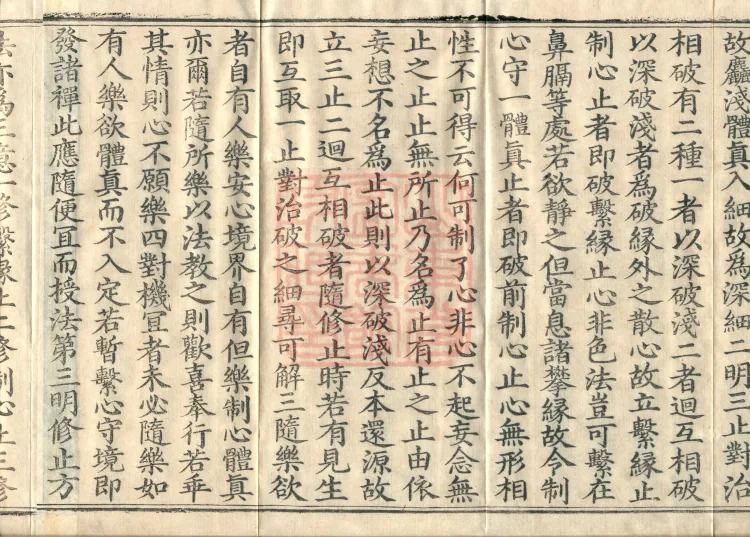 故麤淺體真入細故為深細二明三止對治
相破有二種一者以深破淺二者迴互相破
以深破淺者為破緣外之散心故立繫緣止
制心止者即破繫緣止心非色法豈可繫在
鼻膈等處若欲靜之但當息諸攀緣故令制
心守一體真止者即破前制心止心無形相
性不可得云何可制了心非心不起妄念無
止之止止無所止乃名為止有止之止由依
妄想不名為止此則以深破淺反本還源故
立三止二迴互相破者隨修止時若有見生
即互取一止對治破之細尋可解三隨樂欲
者自有人樂安心境界自有但樂制心體真
亦爾若隨所樂以法教之則歡喜奉行若乖
其情則心不願樂四對機冝者未必隨樂如
有人樂欲體真而不入定若暫繫心守境即
發諸禪此應隨便冝而授法第三明修止方
法亦為三意一修繫緣止二修制心止三修